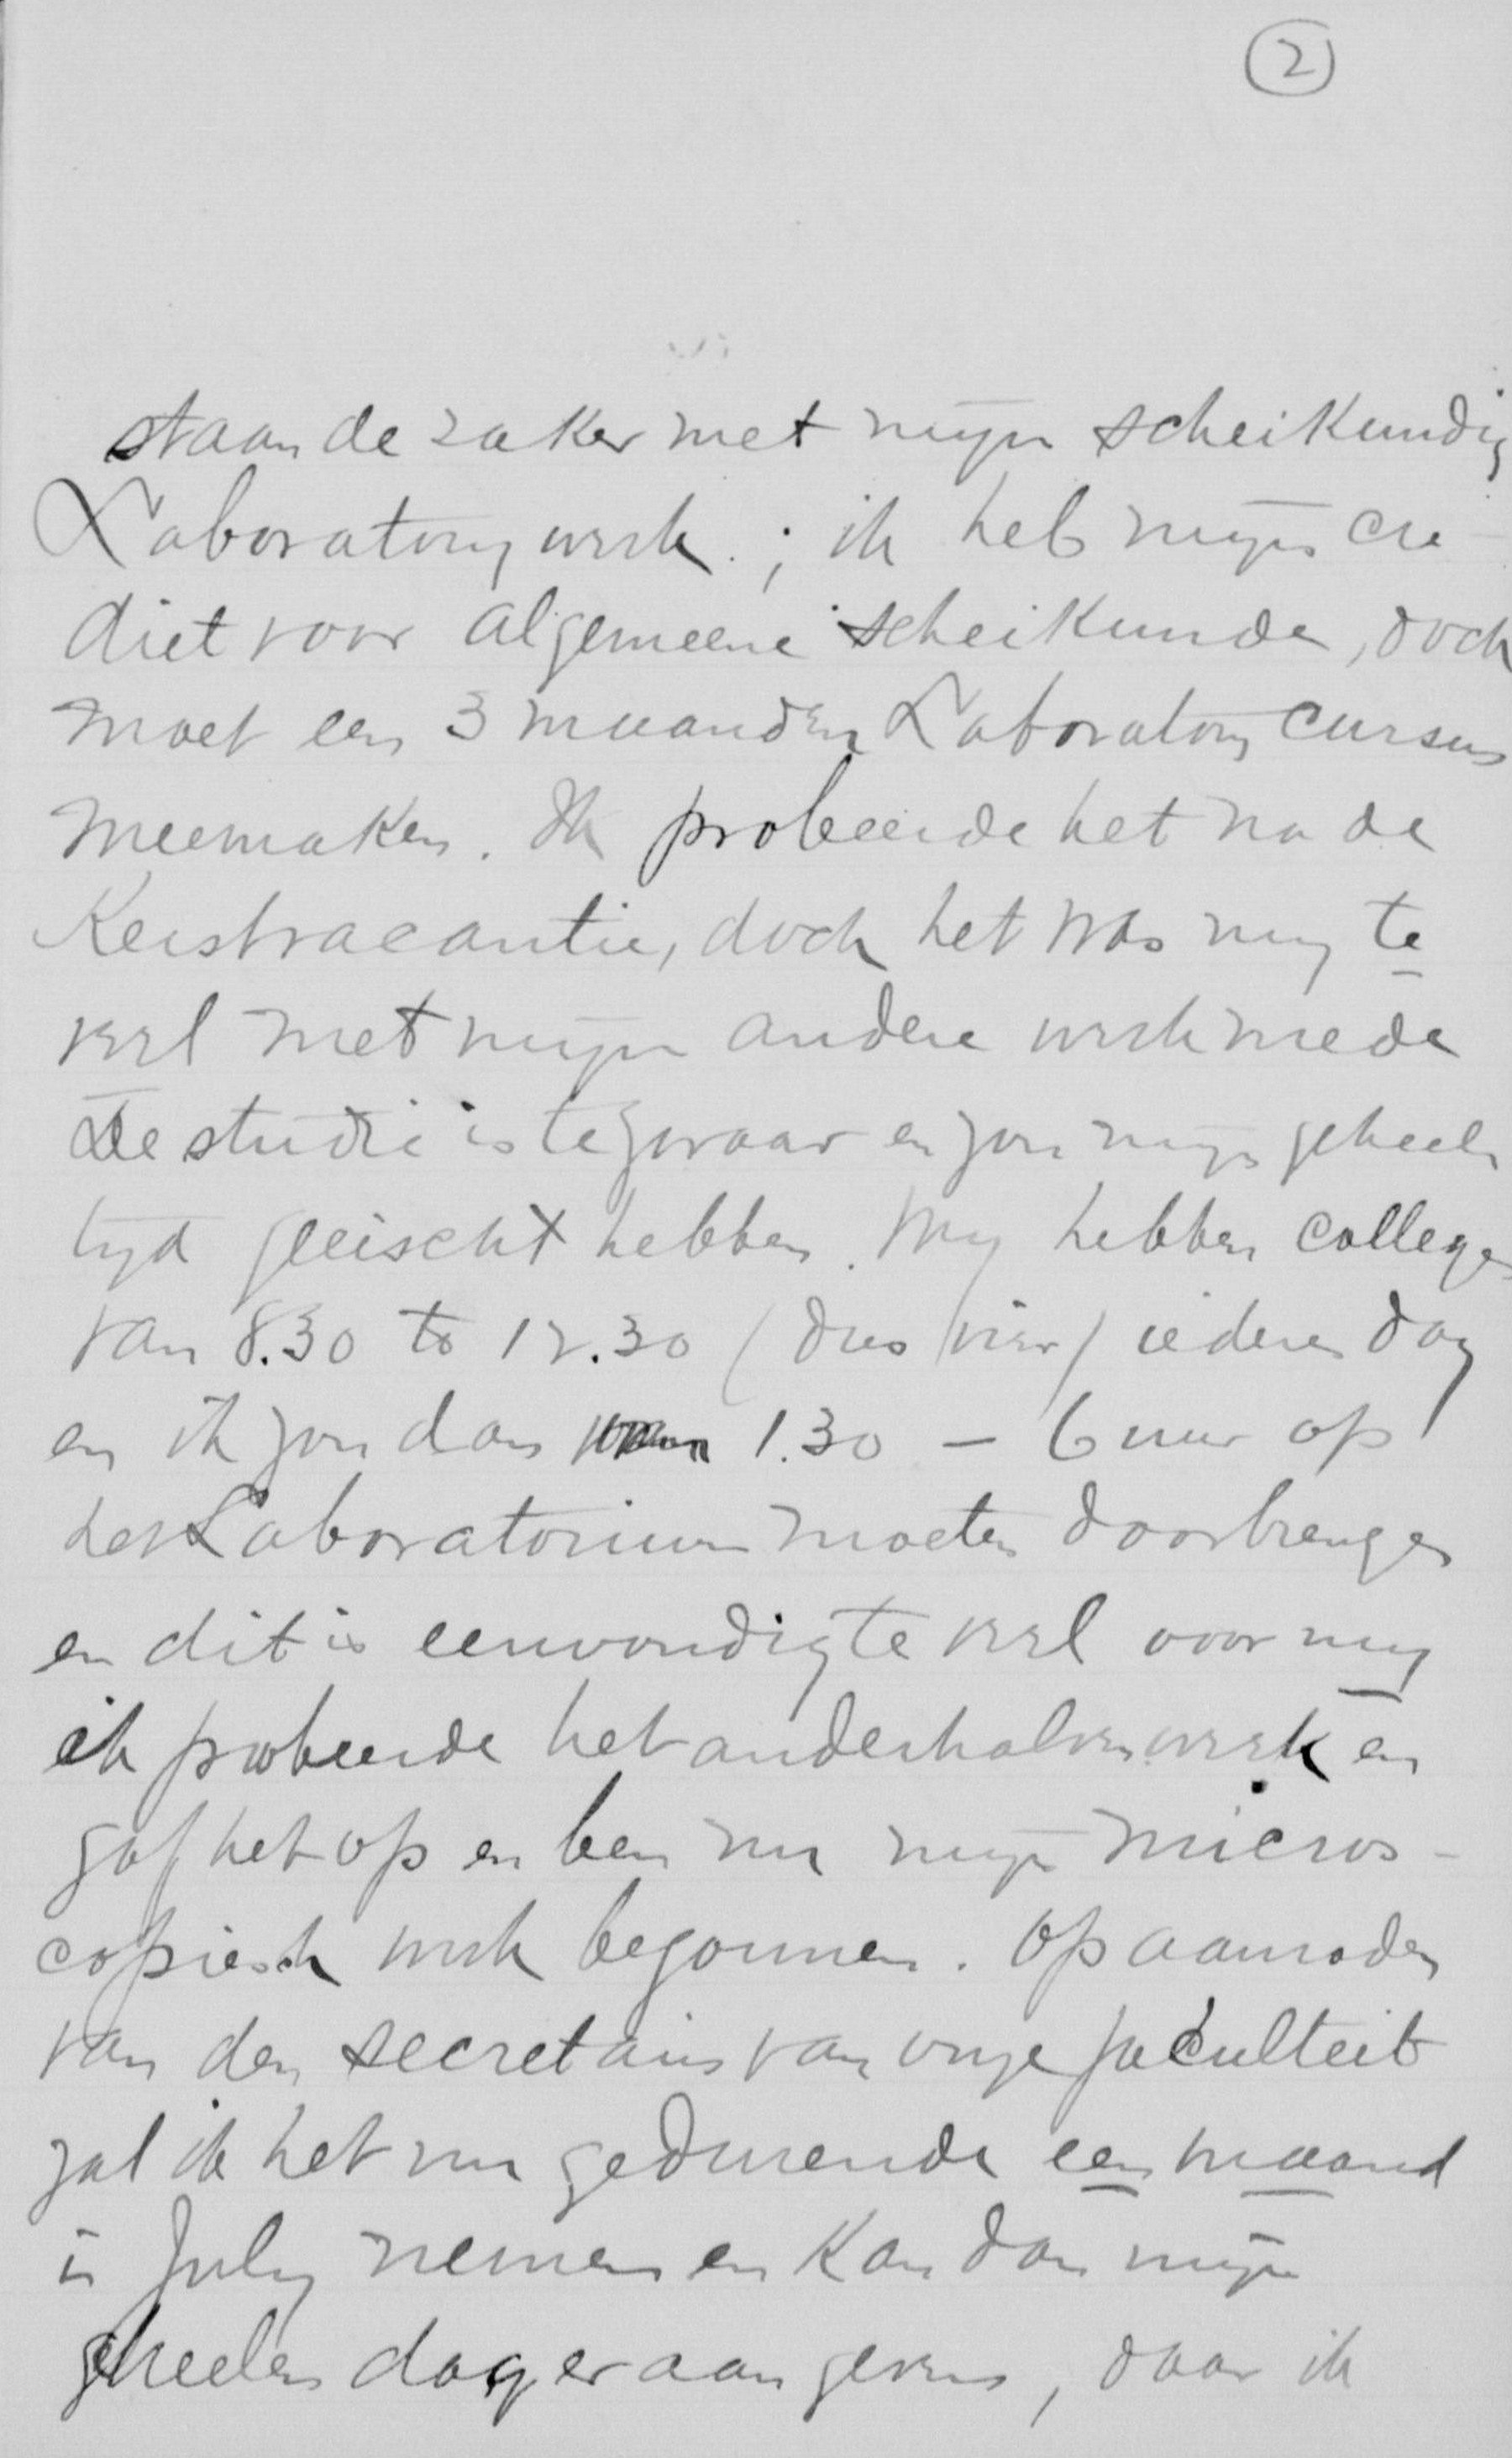 2
staan de zaken met mijn scheikundig
Laboratory werk. ; ik heb mijn cre-
diet voor algemeene scheikunde, doch
moet een 3 maanden Laboratory cursus
meemaken. Ik probeerde het na de
Kerstvacantie, doch het was mij te
veel met mijn andere werk mede
De studie is te zwaar en zou mijn geheele
tijd geeischt hebben. Wij hebben colleges
van 8.30 to 12.30 (dus vier) iedere dag
en ik zou dan 1.30 - 6 uur op
het Laboratorium moeten doorbrengen
en dit is eenvoudig te veel voor mij
ik probeerde het anderhalve week en
gaf het op en ben nu mijn micros-
copiesch werk begonnen. Op aanraden
van den secretaris van onze faculteit
zal ik het nu gedurende een maand
in July nemen en kan dan mijn
geheelen dag er aan geven, daar ik